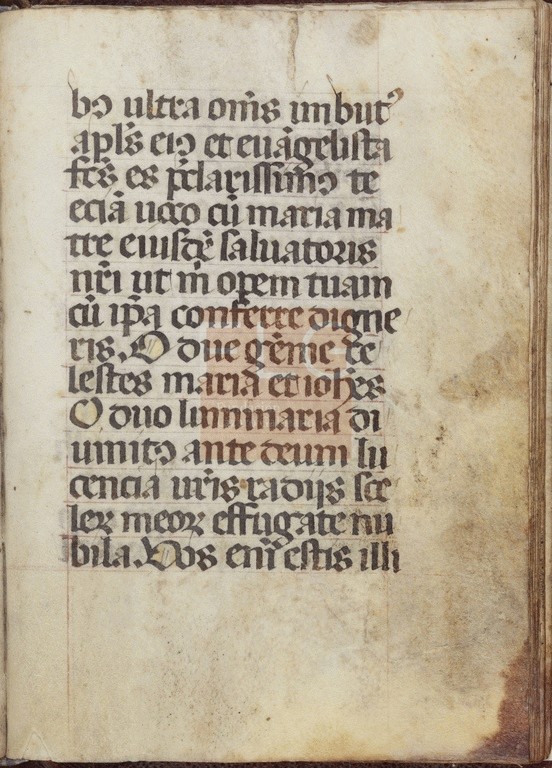 bꝰ ultra om̅s imbutꝰ
apl̅s eiꝰ et eua̅gelista
fc̅s es p̅clarissimꝰ te
ecia̅ uoco cu̅ maria ma
tre eiusde̅ saluatoris
nr̅i ut m̅ opem tuam
cu̅ ip̅a conferre digne
ris. O due ge̅me ce
lestes maria et ioh̅es
O duo luminaria di
uinitꝰ ante deum lu
cencia ur̅is radijs sce
leꝝ meoꝝ effugate nu
bila. Vos eni̅ estis illi